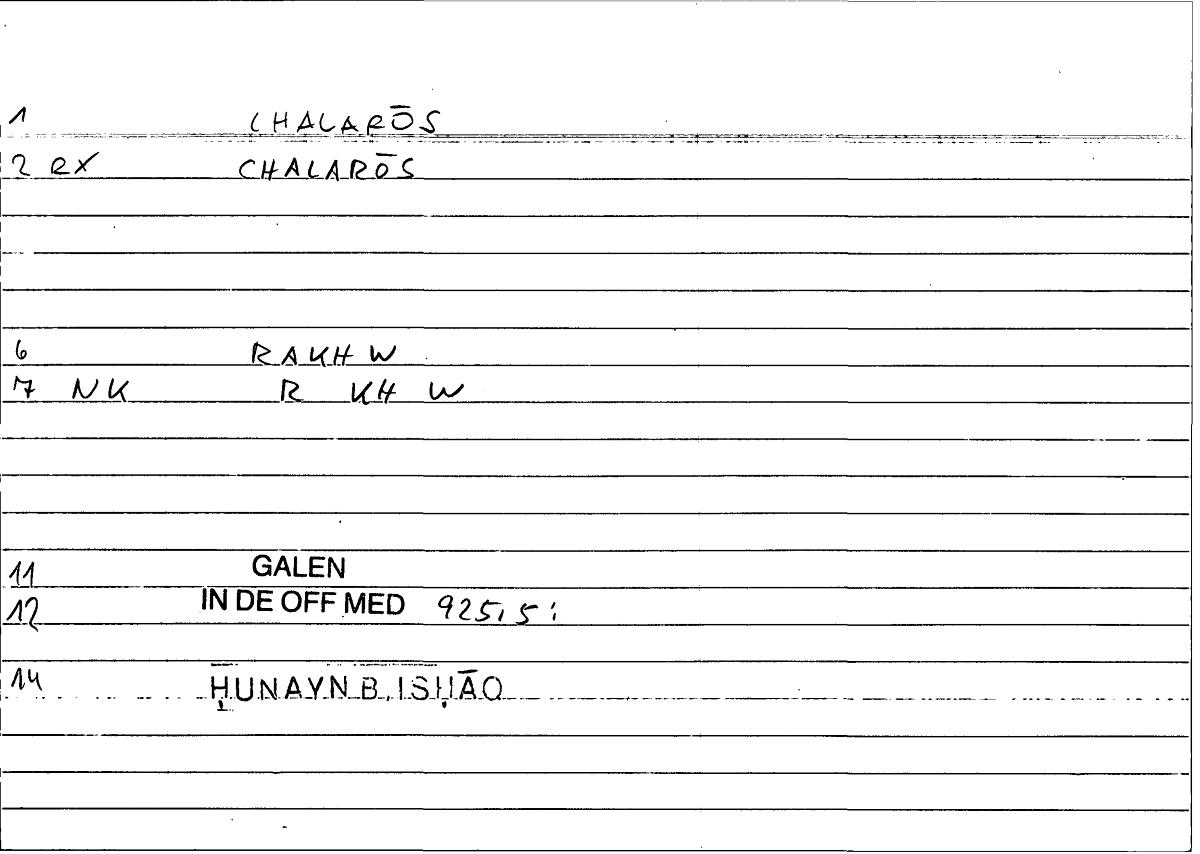 1 CHALARŌS
2 RX CHALARŌS
6 RAKH W
7 NK R KH W
11 GALEN
12 IN DE OFF MED 925,5 :
14 ḤUNAYN B. ISḤĀQ